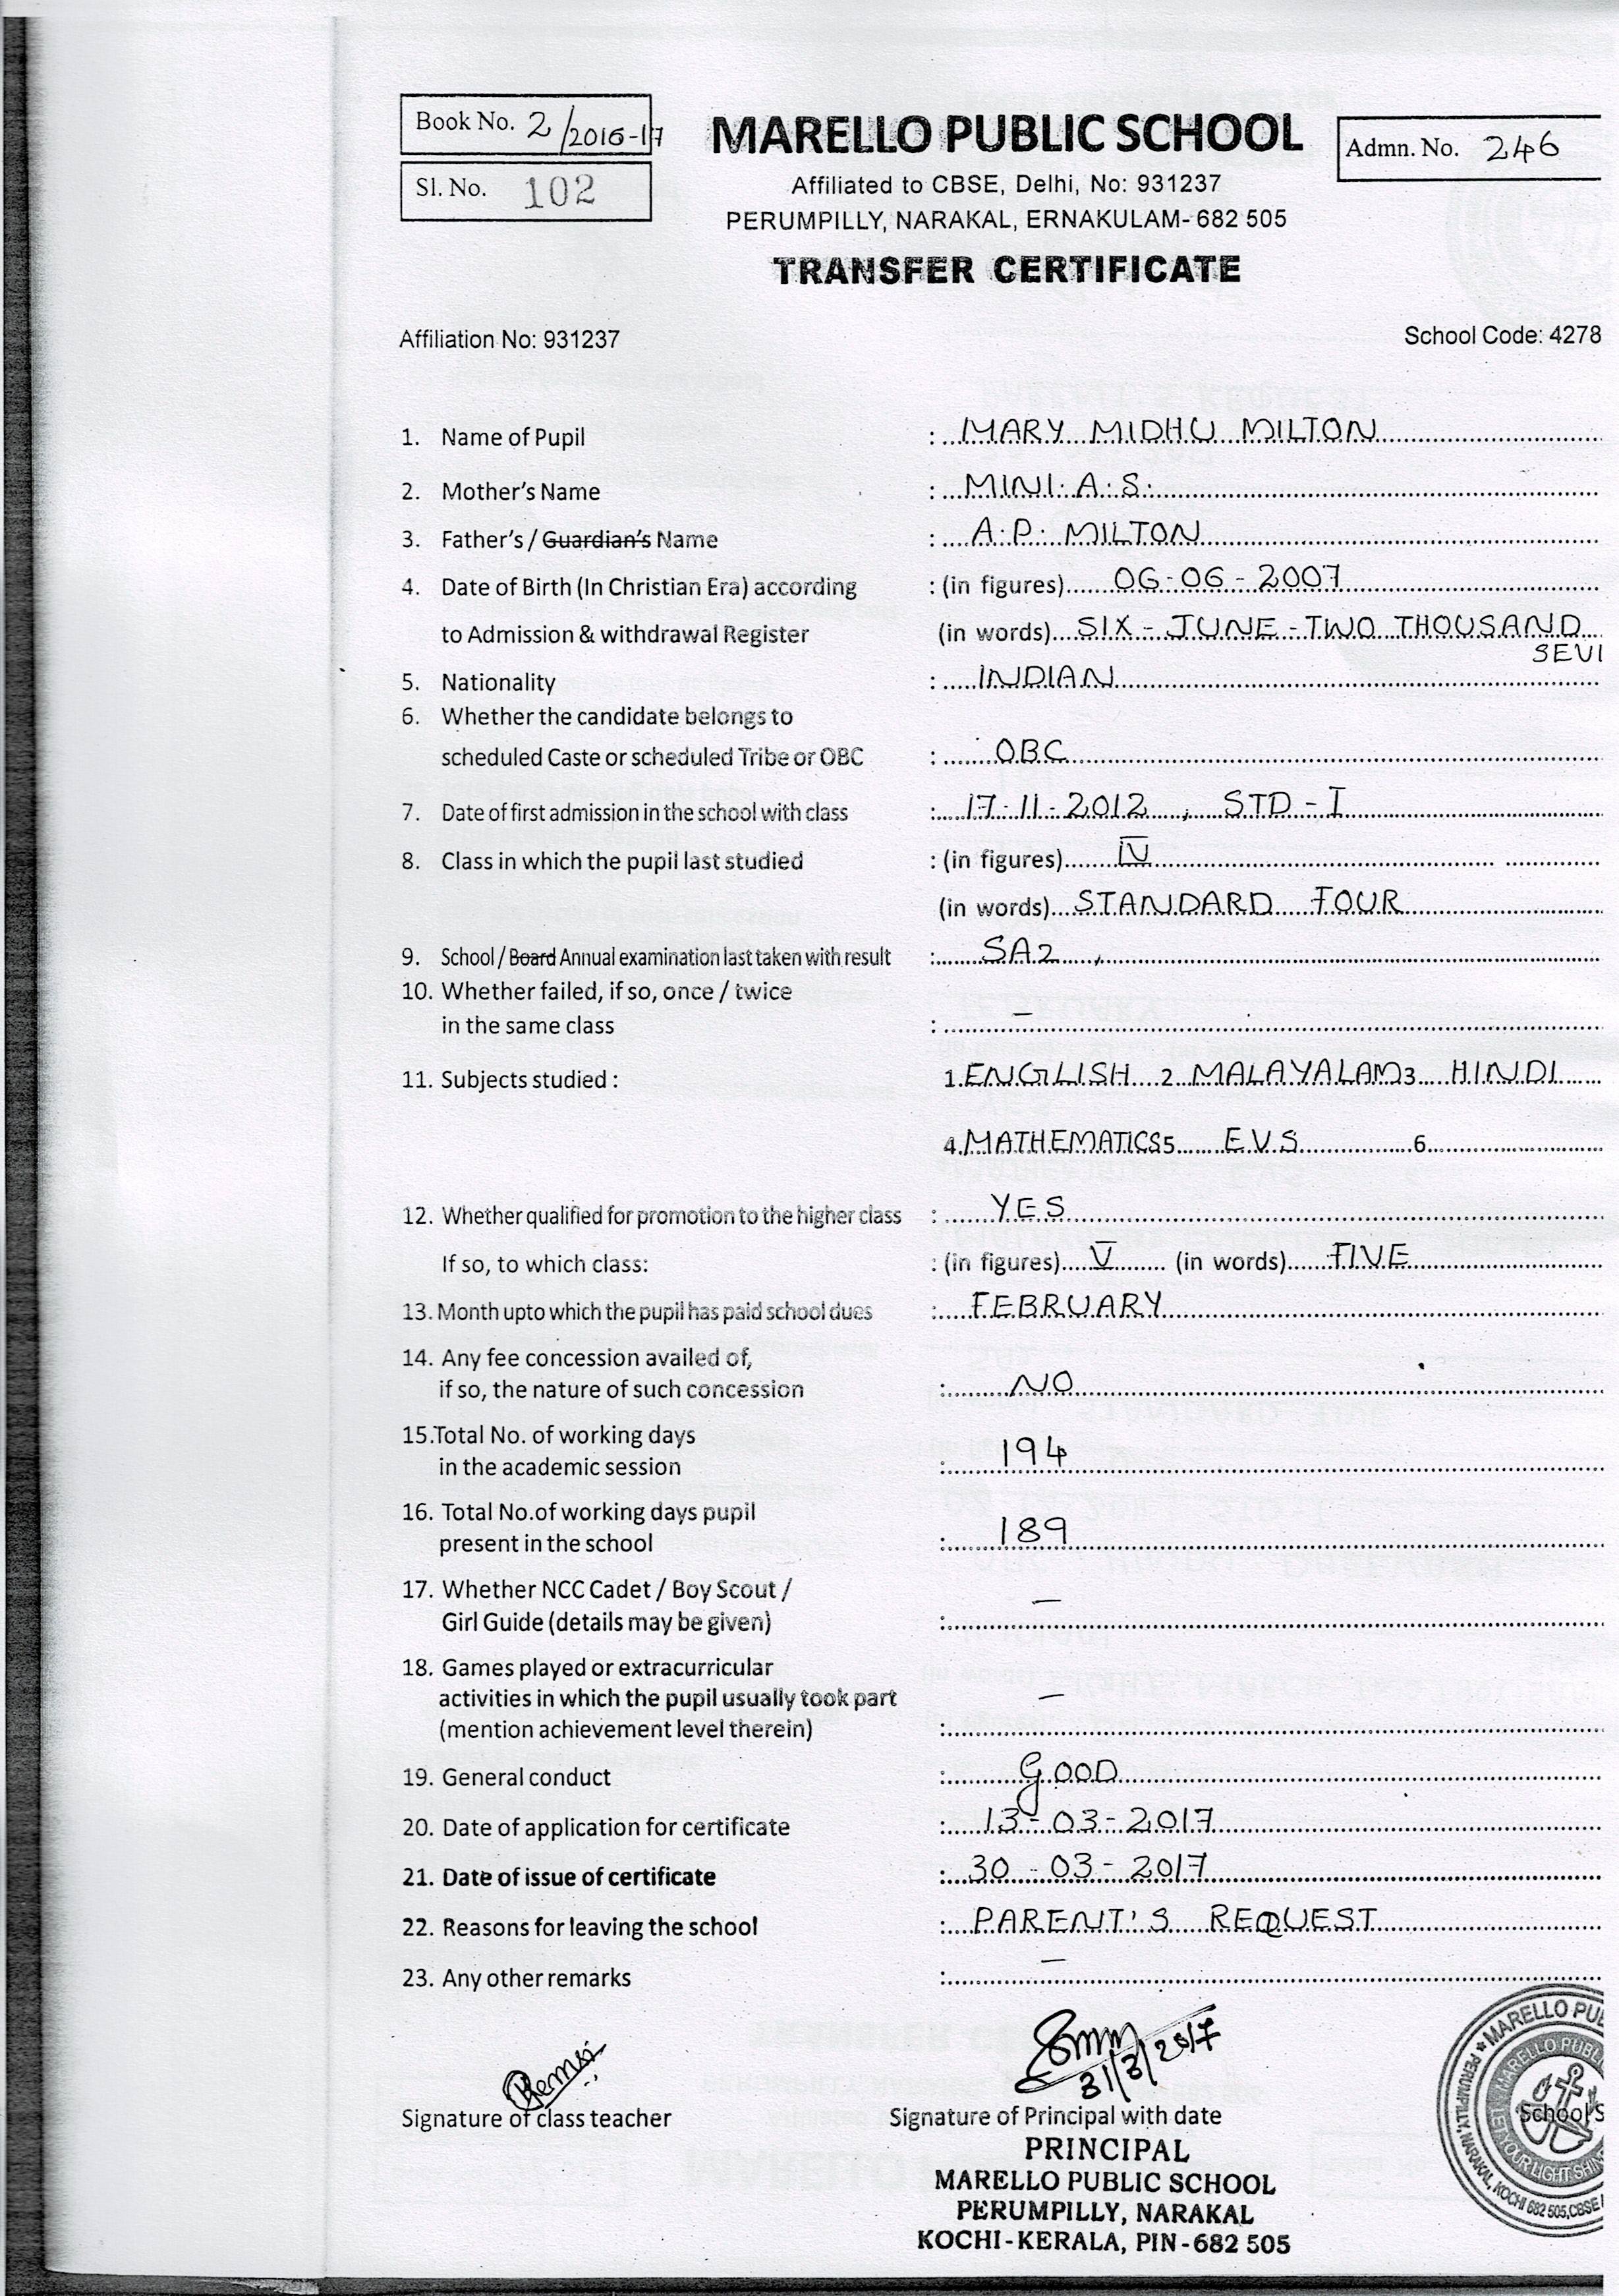 Book No. 2/2016-17
Sl. No. 102
MARELLO PUBLIC SCHOOL
Affiliated to CBSE, Delhi, No: 931237
PERUMPILLY, NARAKAL, ERNAKULAM- 682 505
TRANSFER CERTIFICATE
Admn. No. 246
Affiliation No: 931237 School Code: 4278
1. Name of Pupil : MARY MIDHU MILTON
2. Mother's Name : MINI. A. S.
3. Father's / Guardian's Name : A. P. MILTON
4. Date of Birth (In Christian Era) according : (in figures) 06-06-2007
to Admission & withdrawal Register (in words) SIX - JUNE - TWO THOUSAND
SEVE
5. Nationality : INDIAN
6. Whether the candidate belongs to
scheduled Caste or scheduled Tribe or OBC : OBC
7. Date of first admission in the school with class : 17-11-2012, STD - I
8. Class in which the pupil last studied : (in figures) IV
(in words) STANDARD FOUR
9. School / Board Annual examination last taken with result : SA2,
10. Whether failed, if so, once / twice
in the same class : –
11. Subjects studied : 1. ENGLISH 2 MALAYALAM 3 HINDI
4. MATHEMATICS 5 E.V.S 6
12. Whether qualified for promotion to the higher class : YES
If so, to which class: : (in figures) V (in words) FIVE
13. Month upto which the pupil has paid school dues : FEBRUARY
14. Any fee concession availed of,
if so, the nature of such concession : NO
15.Total No. of working days
in the academic session : 194
16. Total No.of working days pupil
present in the school : 189
17. Whether NCC Cadet / Boy Scout /
Girl Guide (details may be given) : –
18. Games played or extracurricular
activities in which the pupil usually took part
(mention achievement level therein) : –
19. General conduct : GOOD
20. Date of application for certificate : 13-03-2017
21. Date of issue of certificate : 30-03-2017
22. Reasons for leaving the school : PARENT'S REQUEST
23. Any other remarks : –
31/3/2017
Signature of class teacher Signature of Principal with date School S
PRINCIPAL
MARELLO PUBLIC SCHOOL
PERUMPILLY, NARAKAL
KOCHI-KERALA, PIN-682 505
MARELLO PU
PERUMPILLY, NARAKAL, KOCHI 682 505, CBSE
MARELLO PUBL
LET YOUR LIGHT SHIN